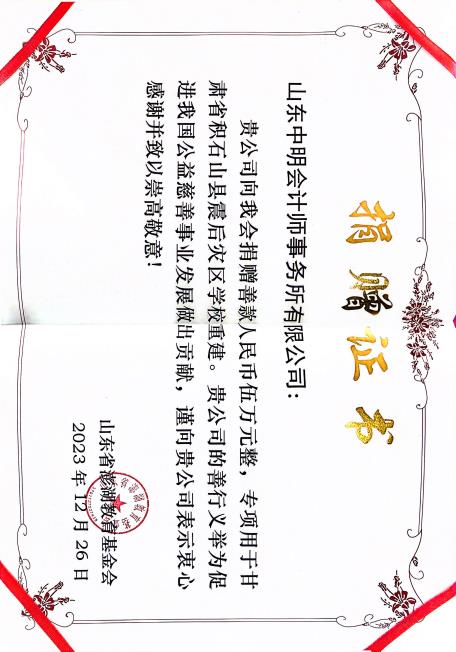 捐赠证书
山东中明会计师事务所有限公司：
贵公司向我会捐赠善款人民币伍万元整，专项用于甘
肃省积石山县震后灾区学校重建。贵公司的善行义举为促
进我国公益慈善事业发展做出贡献，谨向贵公司表示衷心
感谢并致以崇高敬意！
山东省澎湖教育基金会
2023年12月26日